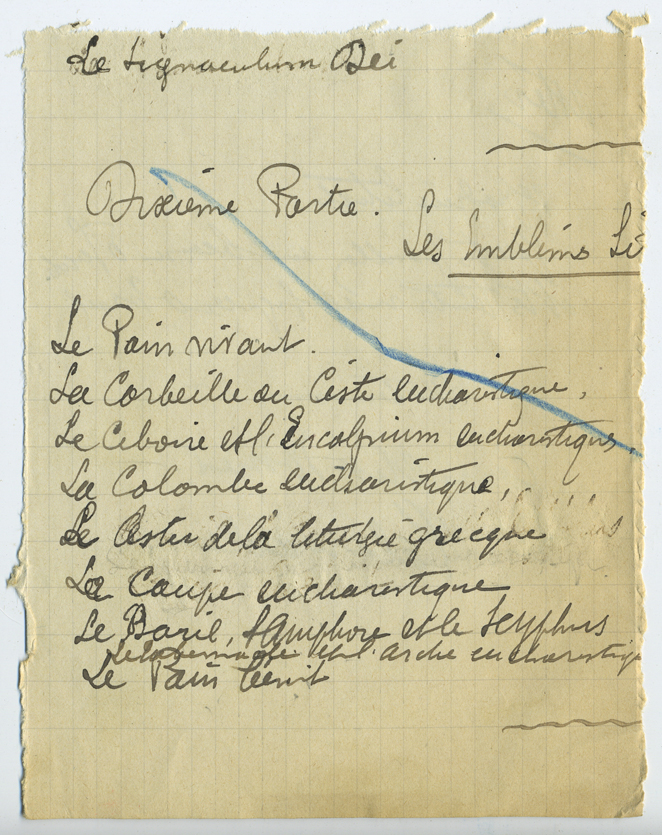 Le Signaculum Dei
Dixième Partie.
Les Emblèms Li
Le Pain vivant.
La Corbeille ou Ciste eucharistique,
Le Ciboire et l'Encolpium eucharistiques.
La Colombe eucharistique,
Le Aster de la liturgie grecque
La Coupe eucharistique
Le Baril, l'Amphore et le Scyphus
et l'arche eucharistiq
Le Pain bénit